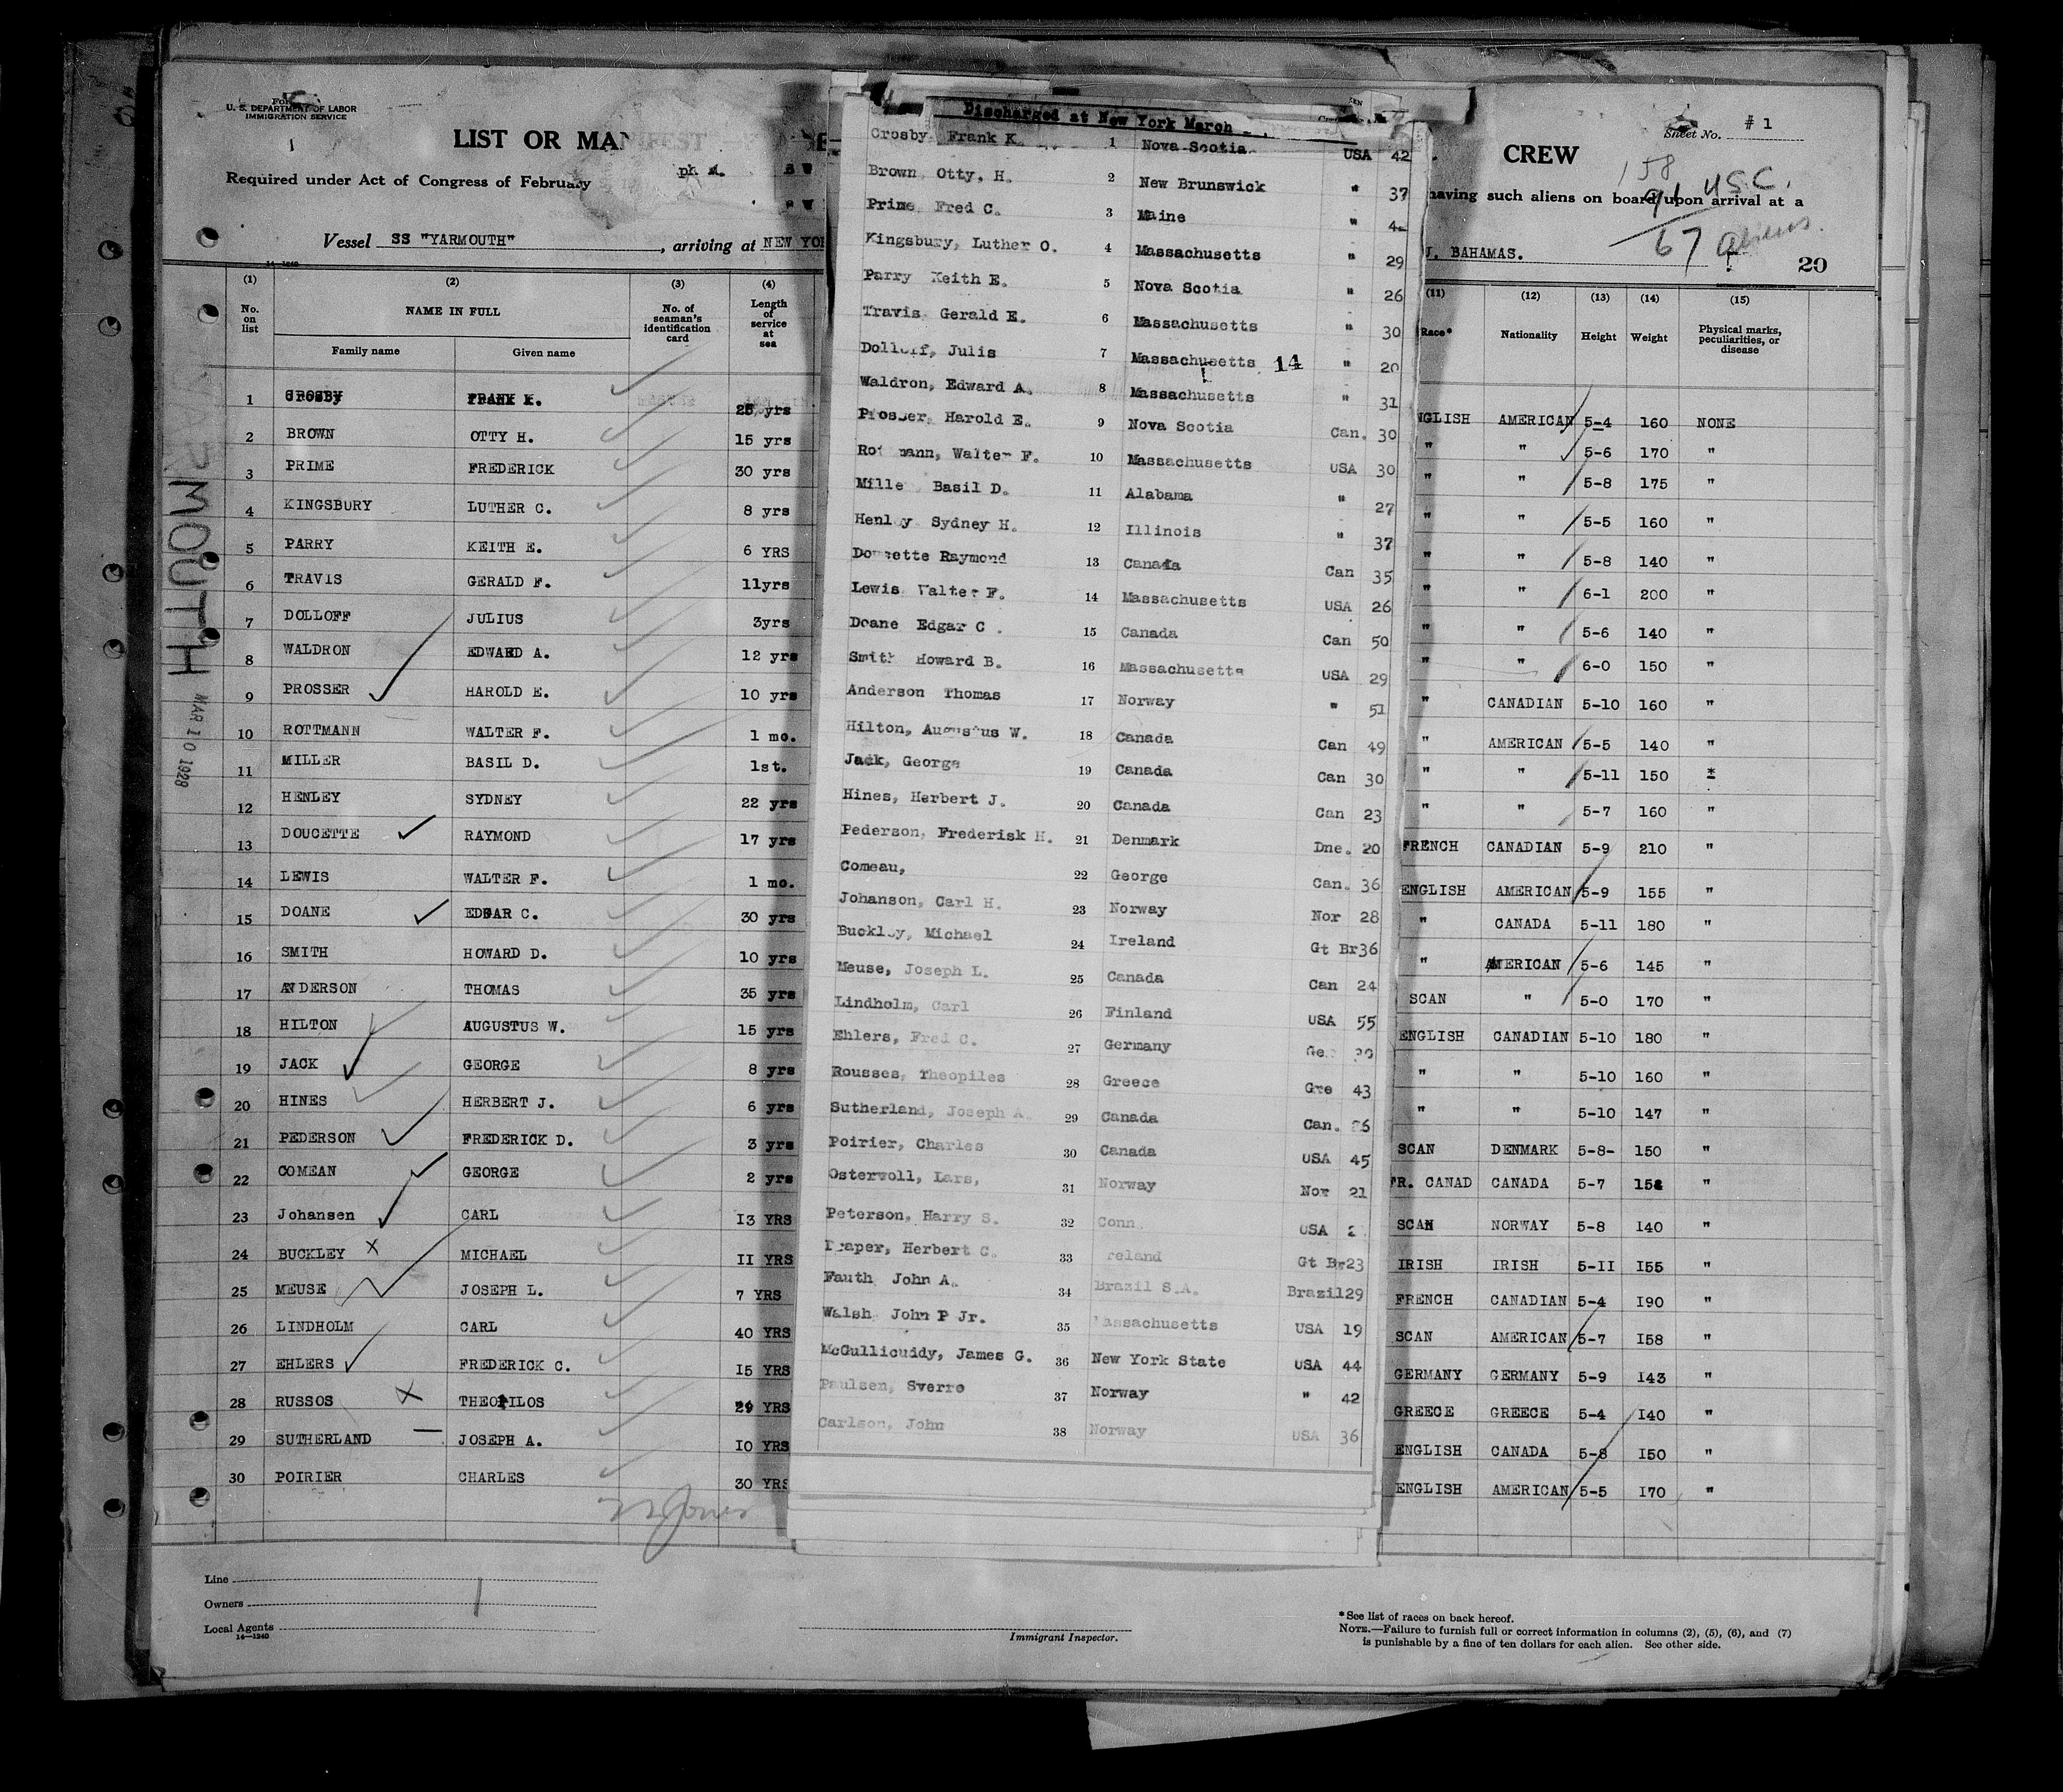 U. S. DEPARTMENT OF LABOR
IMMIGRATION SERVICE
LIST OR MANIFEST
CREW
Sheet No. # 1
158
91 U.S.C.
67 aliens.
Required under Act of Congress of February
having such aliens on board upon arrival at a
Vessel SS "YARMOUTH" , arriving at NEW YO
BAHAMAS.
20
14—1240
YARMOUTH
MAR 10 1928
(1) (2) (3) (4)
No. on list
NAME IN FULL
Family name Given name
No. of seaman's identification card
Length of service at sea
1 CROSBY FRANK K. 25 yrs
2 BROWN OTTY H. 15 yrs
3 PRIME FREDERICK 30 yrs
4 KINGSBURY LUTHER C. 8 yrs
5 PARRY KEITH E. 6 YRS
6 TRAVIS GERALD F. 11yrs
7 DOLLOFF JULIUS 3yrs
8 WALDRON EDWARD A. 12 yrs
9 PROSSER HAROLD E. 10 yrs
10 ROTTMANN WALTER F. 1 mo.
11 MILLER BASIL D. 1st.
12 HENLEY SYDNEY 22 yrs
13 DOUCETTE RAYMOND 17 yrs
14 LEWIS WALTER F. 1 mo.
15 DOANE EDGAR C. 30 yrs
16 SMITH HOWARD D. 10 yrs
17 ANDERSON THOMAS 35 yrs
18 HILTON AUGUSTUS W. 15 yrs
19 JACK GEORGE 8 yrs
20 HINES HERBERT J. 6 yrs
21 PEDERSON FREDERICK D. 3 yrs
22 COMEAN GEORGE 2 yrs
23 Johansen CARL I3 YRS
24 BUCKLEY MICHAEL II YRS
25 MEUSE JOSEPH L. 7 YRS
26 LINDHOLM CARL 40 YRS
27 EHLERS FREDERICK C. I5 YRS
28 RUSSOS THEOPILOS YRS
29 SUTHERLAND JOSEPH A. I0 YRS
30 POIRIER CHARLES 30 YRS
Discharged at New York March
Crosby Frank K. 1 Nova Scotia USA 42
Brown, Otty, H. 2 New Brunswick " 37
Prime Fred C. 3 Maine "
Kingsbury, Luther O. 4 Massachusetts " 29
Parry Keith E. 5 Nova Scotia " 26
Travis Gerald E. 6 Massachusetts " 30
Dolloff, Julis 7 Massachusetts 14 " 20
Waldron, Edward A. 8 Massachusetts " 31
Prosser, Harold E. 9 Nova Scotia Can. 30
Ro mann, Walter F. 10 Massachusetts USA 30
Mille Basil D. 11 Alabama " 27
Henley Sydney H. 12 Illinois " 37
Doucette Raymond 13 Canada Can 35
Lewis Walter F. 14 Massachusetts USA 26
Doane Edgar C . 15 Canada Can 50
Smith Howard B. 16 Massachusetts USA 29
Anderson Thomas 17 Norway " 51
Hilton, Augustus W. 18 Canada Can 49
Jack, George 19 Canada Can 30
Hines, Herbert J. 20 Canada Can 23
Pederson, Frederisk H. 21 Denmark Dne. 20
Comeau, 22 George Can. 36
Johanson, Carl H. 23 Norway Nor 28
Buckley, Michael 24 Ireland Gt Br36
Meuse, Joseph L. 25 Canada Can 24
Lindholm, Carl 26 Finland USA 55
Ehlers, Fred C. 27 Germany Ge.
Rousses, Theopiles 28 Greece Gre 43
Sutherland, Joseph A. 29 Canada Can. 26
Poirier, Charles 30 Canada USA 45
Ostervoll, Lars, 31 Norway Nor 21
Peterson, Harry S. 32 Conn USA
Draper, Herbert C. 33 reland Gt Br23
Fauth John A. 34 Brazil S.A. Brazil29
Walsh John P Jr. 35 Massachusetts USA 19
McGullicuddy, James G. 36 New York State USA 44
Paulsen, Sverre 37 Norway " 42
Carlson, John 38 Norway USA 36
(11) (12) (13) (14) (15)
Race* Nationality Height Weight Physical marks, peculiarities, or disease
NGLISH AMERICAN 5-4 160 NONE
" " 5-6 170 "
" " 5-8 175 "
" " 5-5 160 "
" " 5-8 140 "
" " 6-1 200 "
" " 5-6 140 "
" " 6-0 150 "
" CANADIAN 5-10 160 "
" AMERICAN 5-5 140 "
" " 5-11 150 *
" " 5-7 160 "
FRENCH CANADIAN 5-9 210 "
ENGLISH AMERICAN 5-9 155 "
" CANADA 5-11 180 "
" AMERICAN 5-6 145 "
SCAN " 5-0 170 "
ENGLISH CANADIAN 5-10 180 "
" " 5-10 160 "
" " 5-10 147 "
SCAN DENMARK 5-8- 150 "
FR. CANAD CANADA 5-7 "
SCAN NORWAY 5-8 I40 "
IRISH IRISH 5-II I55 "
FRENCH CANADIAN 5-4 I90 "
SCAN AMERICAN 5-7 I58 "
GERMANY GERMANY 5-9 I43 "
GREECE GREECE 5-4 I40 "
ENGLISH CANADA 5-8 I50 "
ENGLISH AMERICAN 5-5 I70 "
Line
Owners
Local Agents
14—1240
Immigrant Inspector.
*See list of races on back hereof.
NOTE.—Failure to furnish full or correct information in columns (2), (5), (6), and (7)
is punishable by a fine of ten dollars for each alien. See other side.